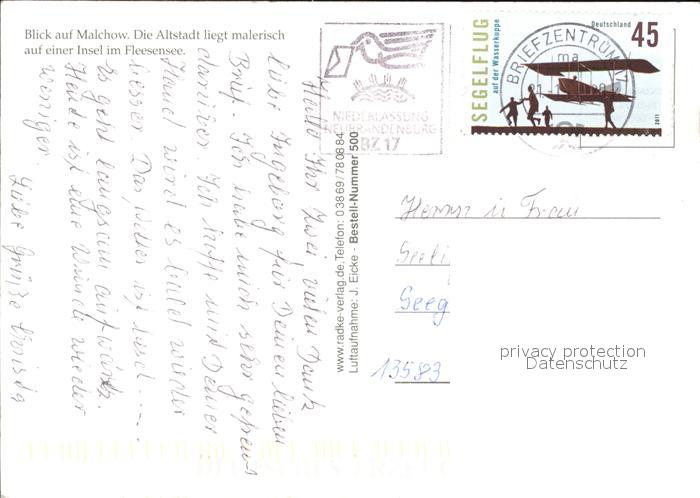 Blick auf Malchow. Die Altstadt liegt malerisch
auf einer Insel im Fleesensee.
Hallo Ihr Zwei, vielen Dank
liebe Ingeborg für Deinen lieben
Brief. Ich habe mich sehr gefreut
darüber. Ich hoffe mit Deiner
Hand wird es bald wieder
besser. Das Wetter ist
Es geht langsam aufwärts.
Heute ist eine Wind wieder
weniger.
Liebe Grüße Christa
www.radke-verlag.de, Telefon: 03869/780884
Luftaufnahme: J. Eicke - Bestell-Nummer 500
NIEDERLASSUNG
NEUBRANDENBURG
BZ 17
BRIEFZENTRUM 17
ma
SEGELFLUG
auf der Wasserkuppe
Deutschland
45
2011
Herrn u Frau
Seeli
Seeg
13583
privacy protection
Datenschutz